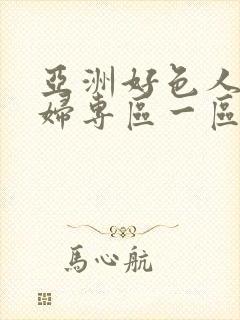 亞洲好色人
婦專區一區
馬心航